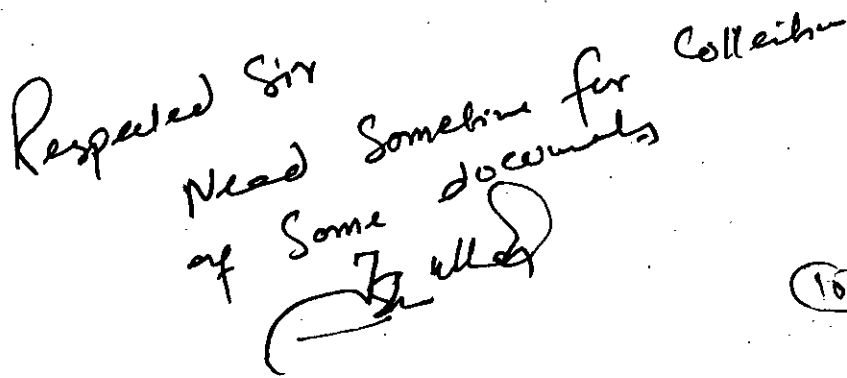 Respected Sir
Need Sometime for Collection
of Some documents